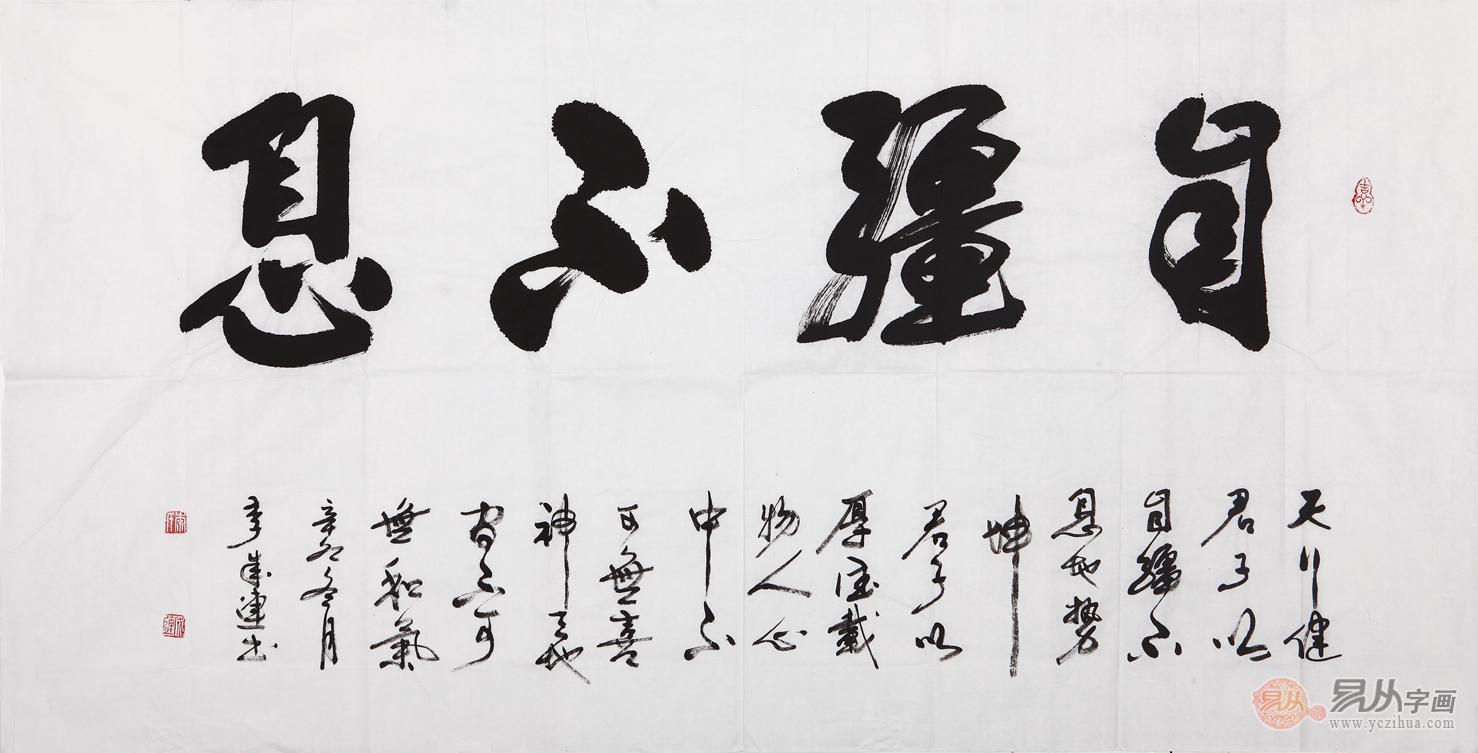 自彊不息
天行健
君子以
自彊不
息地势
坤
君子以
厚德載
物人心
中不
可無喜
神天地
间不可
無和氣
辛卯冬月
李成連书
易从
易从字画
www.yczihua.com